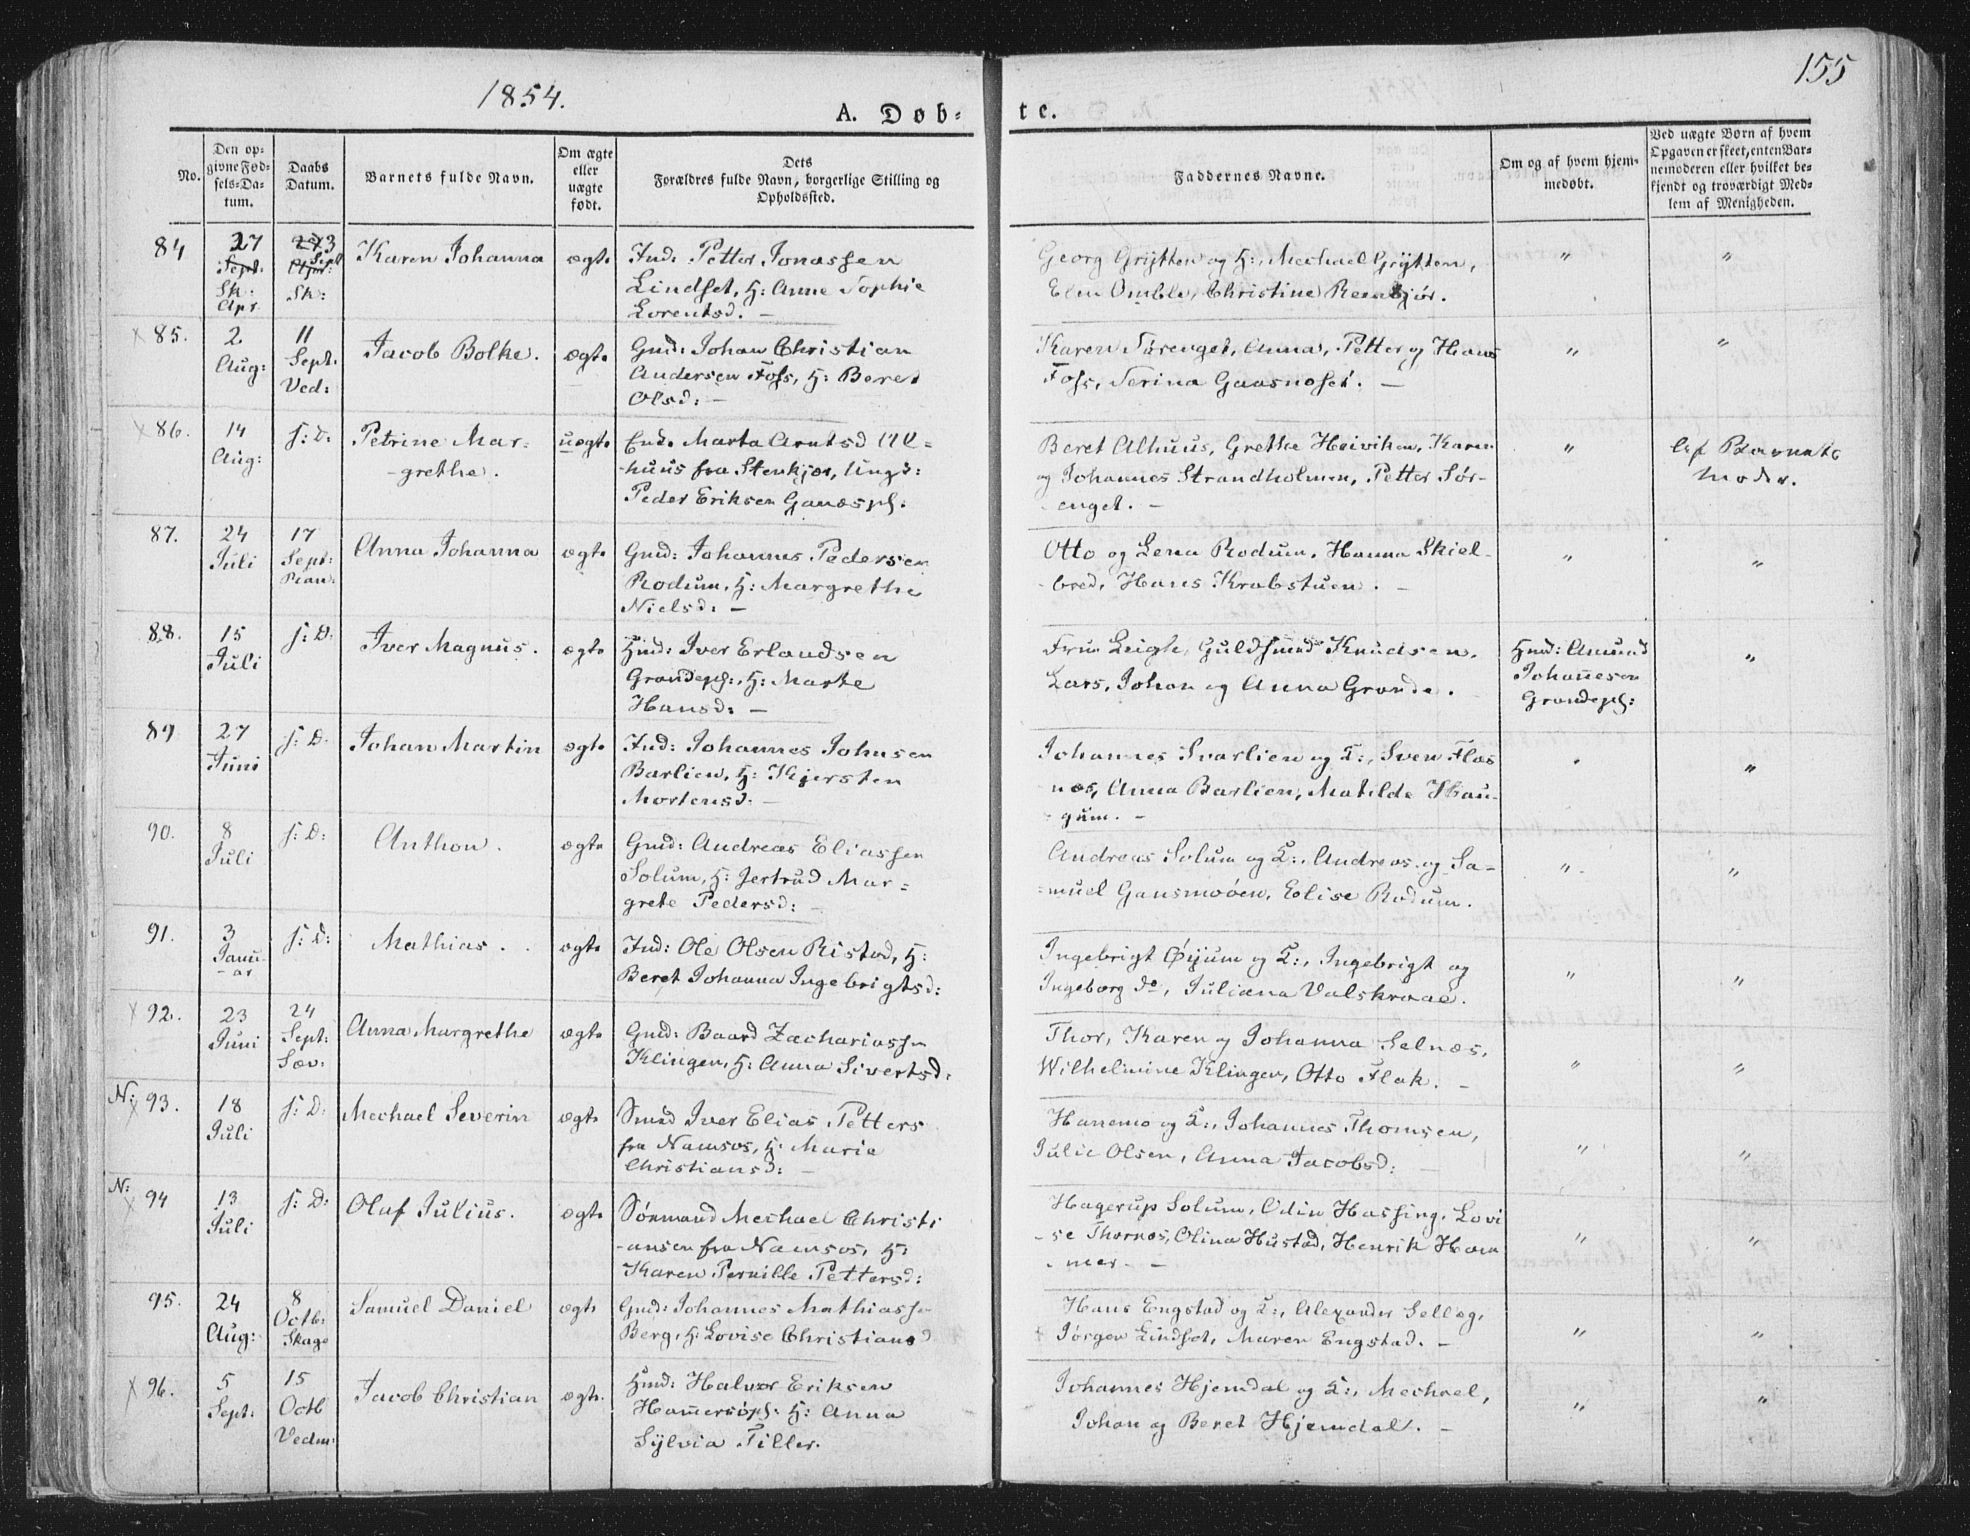 1854.
155
A. Døb-
te.
No.
Den op-
givne Fød-
sels-Da-
tum.
Daabs
Datum.
Barnets fulde Navn.
Om ægte
eller
uægte
født.
Dets
Forældres fulde Navn, borgerlige Stilling og
Opholdssted.
Faddernes Navne.
Om og af hvem hjem-
medøbt.
Ved uægte Børn af hvem
Opgaven er skeet, enten Bar-
nemoderen eller hvilket be-
kjendt og troværdigt Med-
lem af Menigheden.
84
27
Sept:
Sk:
Apr
3
Sept
Sk:
Karen Johanna
ægte
Ind: Petter Jonassen
Lindset, H: Anne Sophie
Lorentsd. -
Georg Grytten og H:, Mechael Grytten,
Christine
"
"
85.
2
Aug:
11
Sept:
Ved:
Jacob Bolke.
ægte
Gmd: Johan Christian
Andersen Foss, H: Beret
Olsd: -
Karen Sørenget, Anna, Petter og Hans
Foss, Serina Gaasnoset. -
"
"
86.
14
Aug:
s: D:
Petrine Mar-
-grethe.
uægte
End. Marta Arntsd Al-
huus fra Stenkjær, Ungk:
Peder Eriksen Ganæspl.
Beret Alhuus, Grethe Heiviken, Karen
og Johannes Strandholmen, Petter Sør-
enget. -
"
Af Barnets
Moder.
87.
24
Juli
17
Sept:
Ran:
Anna Johanna
ægte
Gmd: Johannes Pedersen
Rodum, H: Margrethe
Nielsd: -
Otto og Lena Rodum, Hanna Skiel-
-bred, Hans Krabstuen. -
"
"
88.
15
Juli
s: D:
Iver Magnus.
ægte
Hmd: Iver Erlandsen
Grandepl:, H: Marte
Hansd: -
Fru Leigh, Guldsmed Knudsen,
Lars, Johan og Anna Grande.
Hmd: Amund
Johannesen
Grandepl:
"
89
27
Juni
s: D:
Johan Martin
ægte
Ind: Johannes Johnsen
Barlien, H: Kjersten
Mortensd: -
Johannes Svarlien og H:, Sven Flas
næs, Anna Barlien, Matilde Hau-
gum. -
"
90.
8
Juli
s: D:
Anthon.
ægte
Gmd: Andreas Eliassen
Solum, H: Jertrud Mar-
grete Pedersd: -
Andreas Solum og H:, Andreas og Sa-
-muel Gansmoøen, Elise Rodum.
"
"
91.
3
Janu-
-ar
s: D:
Mathias.
ægte
Ind: Ole Olsen Ristad, H:
Beret Johanna Ingebrigtsd:
Ingebrigt Øijum og H:, Ingebrigt og
Ingeborg do, Juliana Valskraae.
"
"
92.
23
Juni
24
Sept:
Sæv:
Anna Margrethe
ægte
Gmd: Baard Zachariassen
Klingen, H: Anna Sivertsd:
Thor, Karen og Johanna Selnæs,
Wilhelmine Klingen, Otto Flak. -
"
"
N:
93.
18
Juli
s: D:
Mechael Severin
ægte
Smed Iver Elias Petters
fra Namsos, H: Marie
Christiansd: -
Hanemo og H:, Johannes Thomsen,
Julie Olsen, Anna Jacobsd:
"
"
N:
94
13
Juli
s: D:
Oluf Julius.
ægte
Sømand Mechael Christi
-ansen fra Namsos, H:
Karen Pernille Pettersd:
Hagerup Solum, Odin Hassing, Lovi
-se Thornæs, Olina Hustad, Henrik Ham
-mer. -
"
"
95.
24
Aug:
8
Octb:
Skage
Samuel Daniel
ægte
Gmd: Johannes Mathiasse
Berg, H: Lovise Christiansd
Hans Engstad og H:, Alexander Selleg,
Jørgen Lindset, Maren Engstad. -
"
"
96.
5
Sept:
15
Octb
Vedm:
Jacob Christian
ægte.
Hmd: Halvor Eriksen
Hamersøpl: H: Anna
Sylvia Tiller.
Johannes Hjemdal og H:, Mechael,
Johan og Beret Hjemdal. -
"
"